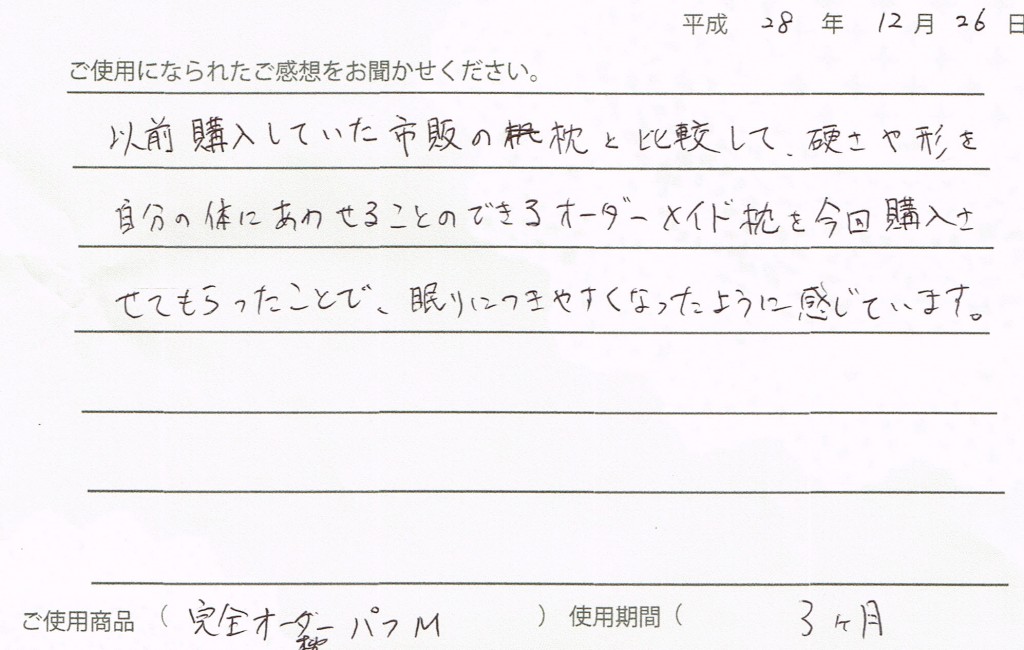 平成 28 年 12月 26 日
ご使用になられたご感想をお聞かせください。
以前購入していた市販の枕と比較して、硬さや形を
自分の体にあわせることのできるオーダーメイド枕を今回購入さ
せてもらったことで、眠りにつきやすくなったように感じています。
ご使用商品 ( 完全オーダー枕 パフM ) 使用期間 ( 3ヶ月